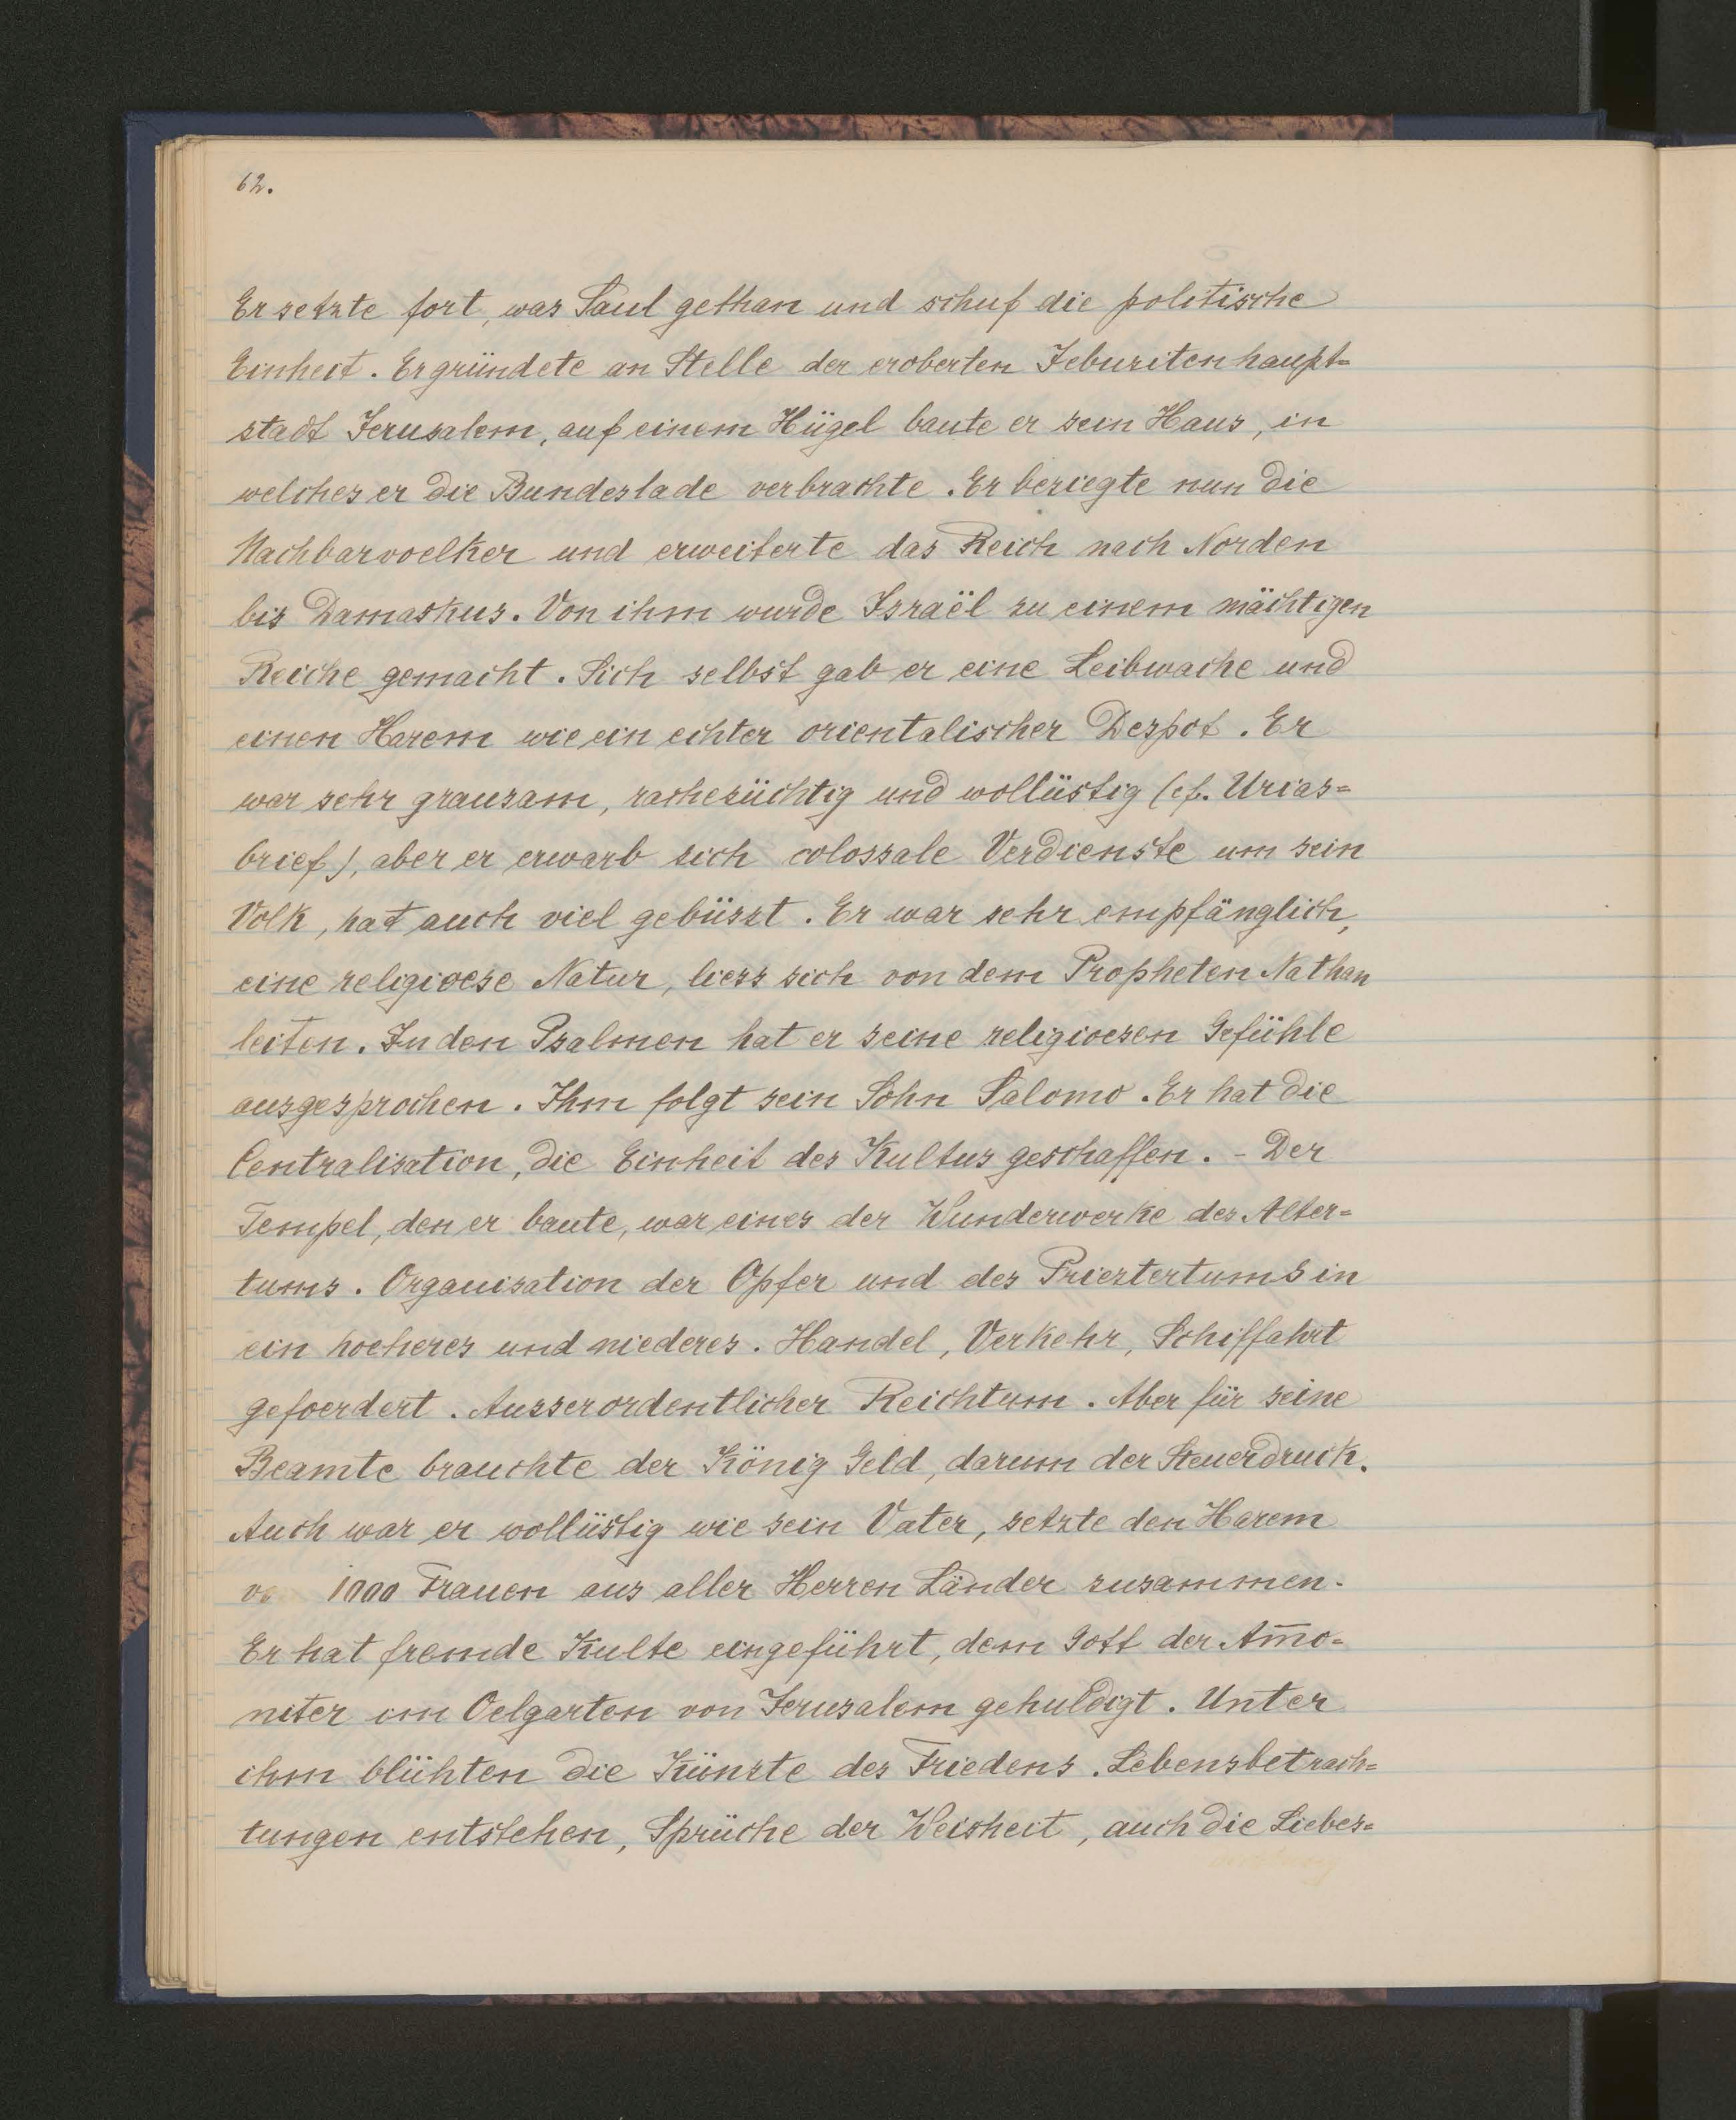 62.
Er setzte fort, was Saul gethan und schuf die politische
Einheit. Er gründete an Stelle der eroberten Jebusitenhaupt=
stadt Jerusalem, auf einem Hügel baute er sein Haus, in
welches er die Bundeslade verbrachte. Er besiegte nun die
Nachbarvoelker und erweiterte das Reich nach Norden
bis Damaskus. Von ihm wurde Israël zu einem mächtigen
Reiche gemacht. Sich selbst gab er eine Leibwache und
einen Harem wie ein echter orientalischer Despot. Er
war sehr grausam, rachesüchtig und wollüstig (cf. Urias=
brief), aber er erwarb sich colossale Verdienste um sein
Volk, hat auch viel gebüsst. Er war sehr empfänglich,
eine religioese Natur, liess sich von dem Propheten Nathan
leiten. In den Psalmen hat er seine religioesen Gefühle
ausgesprochen. Ihm folgt sein Sohn Salomo. Er hat die
Centralisation, die Einheit des Kultus geschaffen. - Der
Tempel, den er baute, war eines der Wunderwerke des Alter=
tums. Organisation der Opfer und des Priestertums in
ein hoeheres und niederes. Handel, Verkehr, Schiffahrt
gefoerdert. Ausserordentlicher Reichtum. Aber für seine
Beamte brauchte der König Geld, darum der Steuerdruck.
Auch war er wollüstig wie sein Vater, setzte den Harem
1000 Frauen aus aller Herren Länder zusammen.
Er hat fremde Kulte eingeführt, dem Gott der Am̅o=
niter im Oelgarten von Jerusalem gehuldigt. Unter
ihm blühten die Künste des Friedens. Lebensbetrach=
tungen entstehen, Sprüche der Weisheit, auch die Liebes=